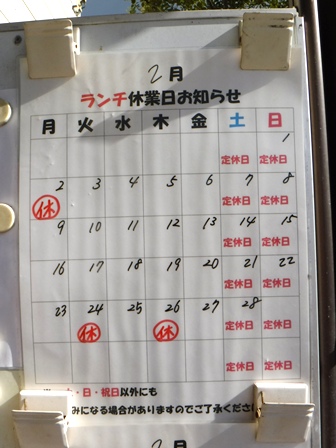 2月
ランチ休業日お知らせ
月 火 水 木 金 土 日
1
定休日 定休日
2 3 4 5 6 7 8
休 定休日 定休日
9 10 11 12 13 14 15
定休日 定休日
16 17 18 19 20 21 22
定休日 定休日
23 24 25 26 27 28
休 休 定休日 定休日
定休日 定休日
・日・祝日以外にも
みになる場合がありますのでご了承ください
2月